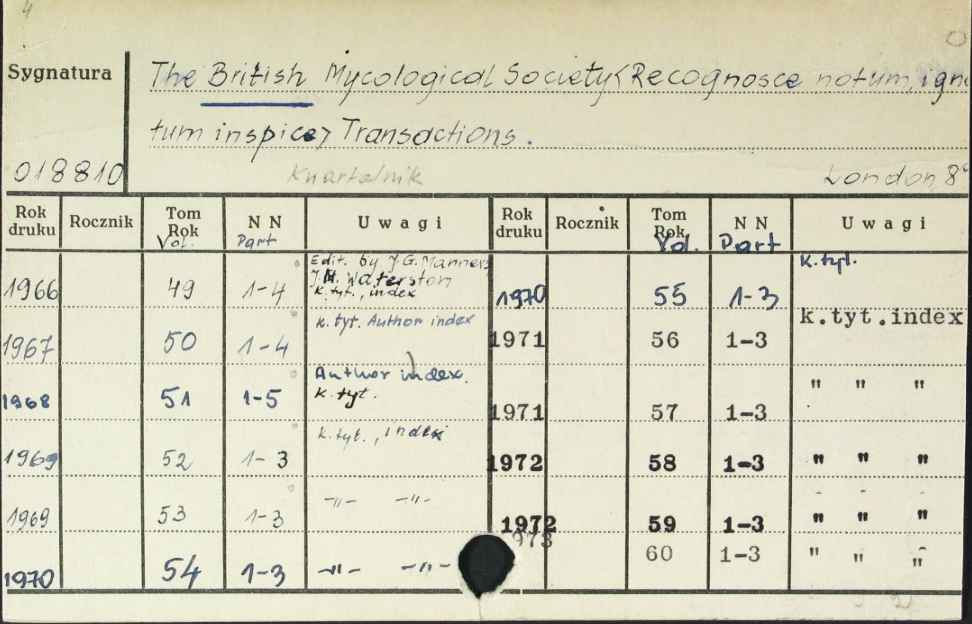 4
Sygnatura The British Mycological Society <Recognosce notum, igno
tum inspice> Transactions.
018810 Kwartalnik London, 8°
Rok druku Rocznik Tom Rok Vol. N N Part Uwagi Rok druku Rocznik Tom Rok Vol. N N Part Uwagi
1966 49 1-4 Edit. by J.G. Manners J.M. Waterston k. tyt., index
1967 50 1-4 k. tyt. Author index
1968 51 1-5 Author index. k. tyt.
1969 52 1-3 k. tyt., index
1969 53 1-3 -„- -„-
1970 54 1-3 -„- -„-
1970 55 1-3 k. tyt.
1971 56 1-3 k.tyt.index
1971 57 1-3 " " "
1972 58 1-3 " " "
1972 59 1-3 " " "
973 60 1-3 " " "